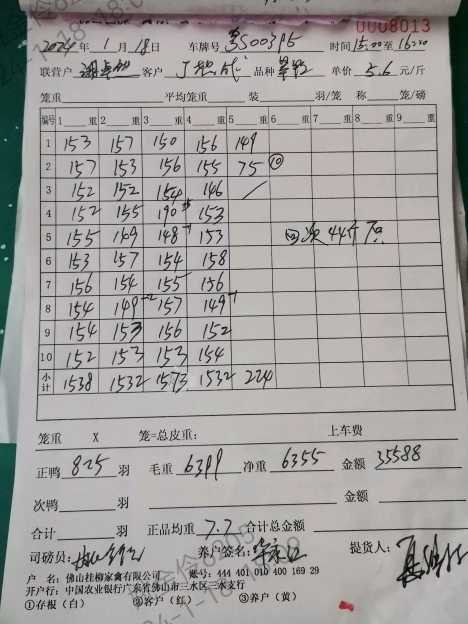 0008013
2024年 1 月 18日 车牌号 时间15:00至16:00
联营户 客户 品种 单价 5.6 元/斤
笼重 平均笼重 装 羽/笼 称 笼/磅
编号 1 重 2 重 3 重 4 重 5 重 6 重 7 重 8 重 9 重
1 153 157 150 156 149
2 157 153 156 155 75 ⑩
3 152 152 154 146 /
4 152 155 190 153
5 155 149 148 153 回次 44斤
6 153 157 154 158
7 156 154 155 156
8 154 149 157 149
9 154 153 156 152
10 152 153 153 154
小计 1538 1532 1573 1532 224
笼重 X 笼=总皮重: 上车费
正鸭 825 羽 毛重 6399 净重 6355 金额 35588
次鸭 羽 金额
合计 羽 正品均重 7.7 合计总金额
司磅员: 养户签名: 提货人:
户 名: 佛山挂柳家禽有限公司 账号: 444 401 010 400 169 29
开户行: 中国农业银行广东省佛山市三水区三水支行
①存根(白) ②客户(红) ③养户(黄)